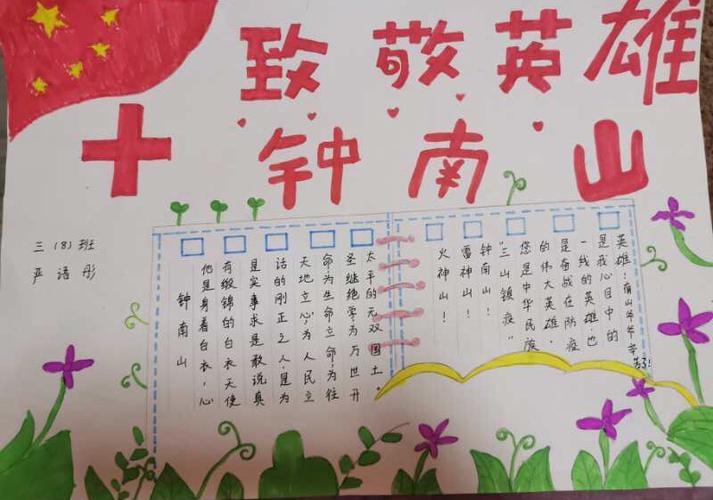 致敬英雄
钟南山
三(8)班
严 彤
钟南山
他是身着白衣,心
有缎锦的白衣天使
是实事求是敢说真
话的刚正之人,是为
天地立心,为人民立
命,为生命立命,为往
圣继绝学,为万世开
太平的无双国土。
火神山!
雷神山!
钟南山!
“三山镇疫”
您是中华民族
的伟大英雄,
是奋战在防疫
一线的英雄,也
是我心目中的
英雄!南山爷爷辛
苦了!